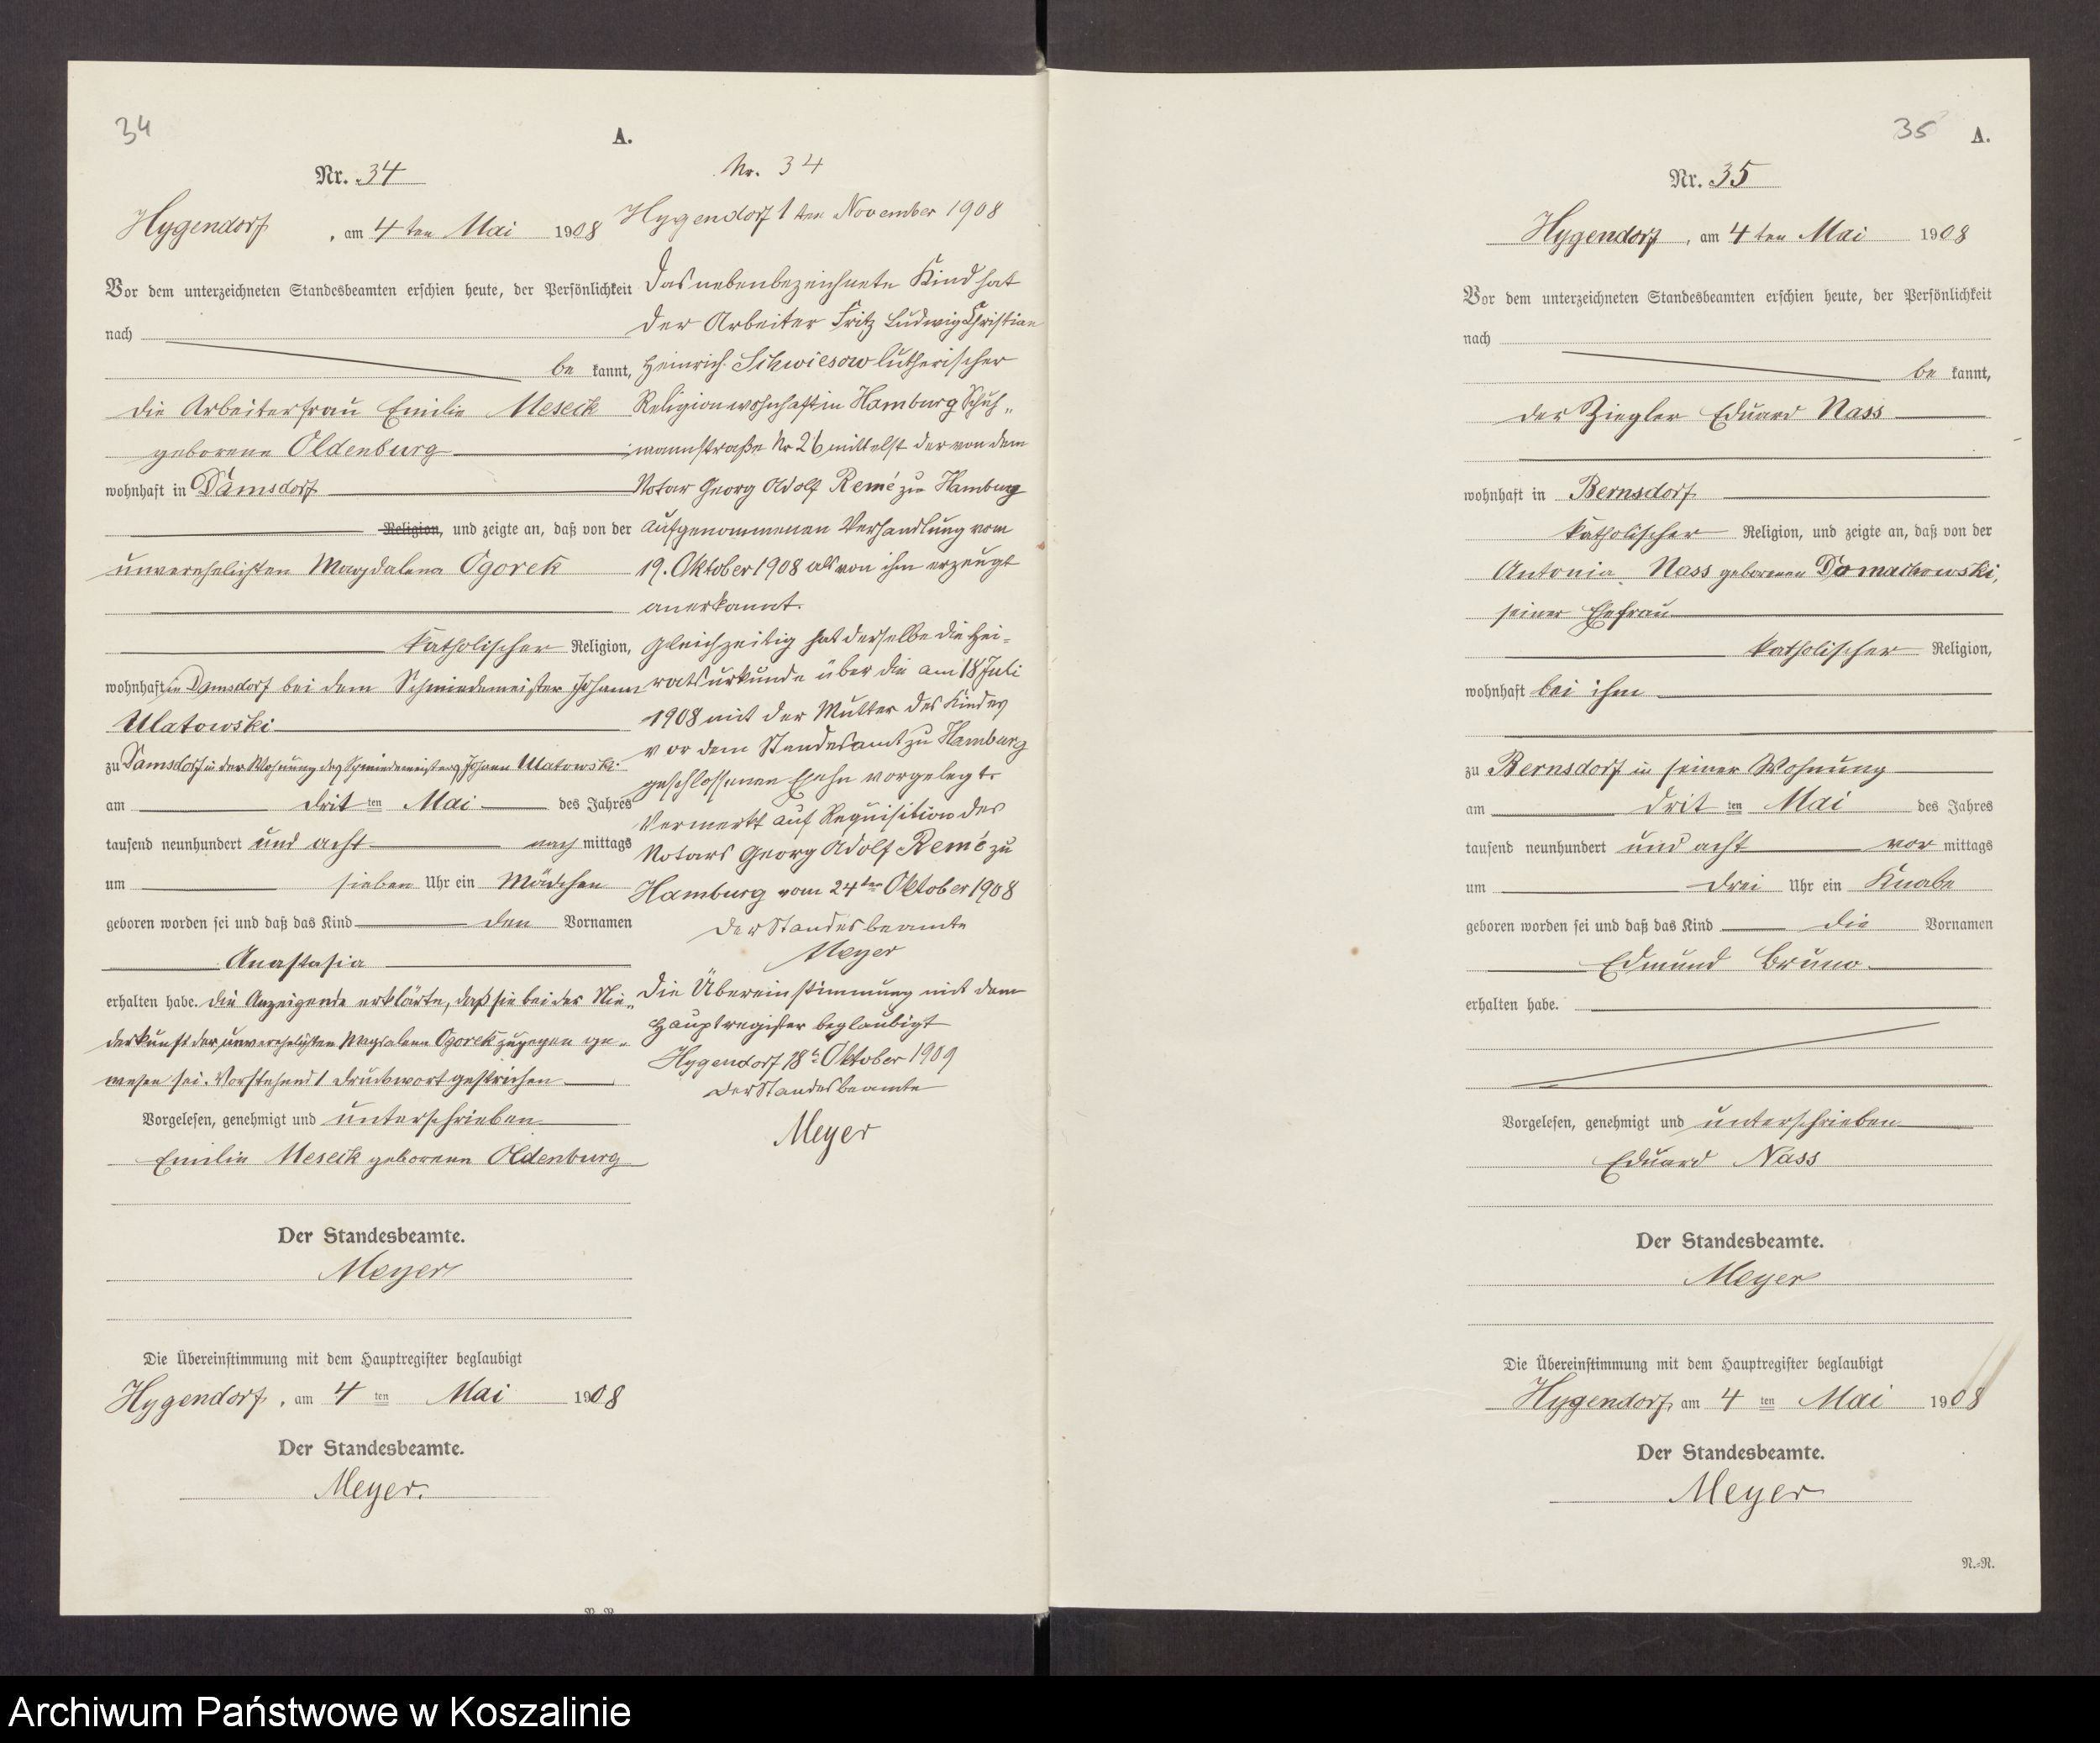 34
A.
Nr. 34
Hygendorf, am 4ten Mai 1908
Vor dem unterzeichneten Standesbeamten erschien heute, der Persönlichkeit
nach
be kannt,
die Arbeiterfrau Emilie Meseck
geborene Oldenburg
wohnhaft in Damsdorf
Religion, und zeigte an, daß von der
unverehelichten Magdalena Ogorek
katholischer Religion,
wohnhaft in Damsdorf bei dem Schmiedemeister Johann
Ulatowski
zu Damsdorf in der Wohnung des Schmiedemeisters Johann Ulatowski
am dritten Mai des Jahres
tausend neunhundert und acht nachmittags
um sieben Uhr ein Mädchen
geboren worden sei und daß das Kind den Vornamen
Anastasia
erhalten habe. Die Anzeigende erklärte, daß sie bei der Nie-
derkunft der unverehelichten Magdalena Ogorek zugegen ge-
wesen sei. Vorstehend 1 Druckwort gestrichen
Vorgelesen, genehmigt und unterschrieben
Emilie Meseck geborene Oldenburg
Der Standesbeamte.
Meyer
Die Übereinstimmung mit dem Hauptregister beglaubigt
Hygendorf, am 4ten Mai 1908
Der Standesbeamte.
Meyer.
Nr. 34
Hygendorf 1ten November 1908
Das nebenbezeichnete Kind hat
der Arbeiter Fritz Ludwig Christian
Heinrich Schwiesow lutherischer
Religion wohnhaft in Hamburg Schuh-
mannstraße Nr 26 mittelst der von dem
Notar Georg Adolf Remé zu Hamburg
aufgenommenen Verhandlung vom
19. Oktober 1908 als von ihm erzeugt
anerkannt.
Gleichzeitig hat derselbe die Hei-
ratsurkunde über die am 18 Juli
1908 mit der Mutter des Kindes
vor dem Standesamt zu Hamburg
geschlossenen Ehe vorgelegt.
Vermerkt auf Requisition des
Notars Georg Adolf Remé zu
Hamburg vom 24ten Oktober 1908
Der Standesbeamte
Meyer
Die Übereinstimmung mit dem
Hauptregister beglaubigt
Hygendorf Oktober 1909
Der Standesbeamte
Meyer
35
A.
Nr. 35
Hygendorf, am 4ten Mai 1908
Vor dem unterzeichneten Standesbeamten erschien heute, der Persönlichkeit
nach
be kannt,
der Ziegler Eduard Nass
wohnhaft in Bernsdorf
katholischer Religion, und zeigte an, daß von der
Antonia Nass geborenen Domachowski,
seiner Ehefrau
katholischer Religion,
wohnhaft bei ihm
zu Bernsdorf in seiner Wohnung
am dritten Mai des Jahres
tausend neunhundert und acht vormittags
um drei Uhr ein Knabe
geboren worden sei und daß das Kind die Vornamen
Edmund Bruno
erhalten habe.
Vorgelesen, genehmigt und unterschrieben
Eduard Nass
Der Standesbeamte.
Meyer
Die Übereinstimmung mit dem Hauptregister beglaubigt
Hygendorf, am 4ten Mai 1908
Der Standesbeamte.
Meyer
N.-N.
Archiwum Państwowe w Koszalinie